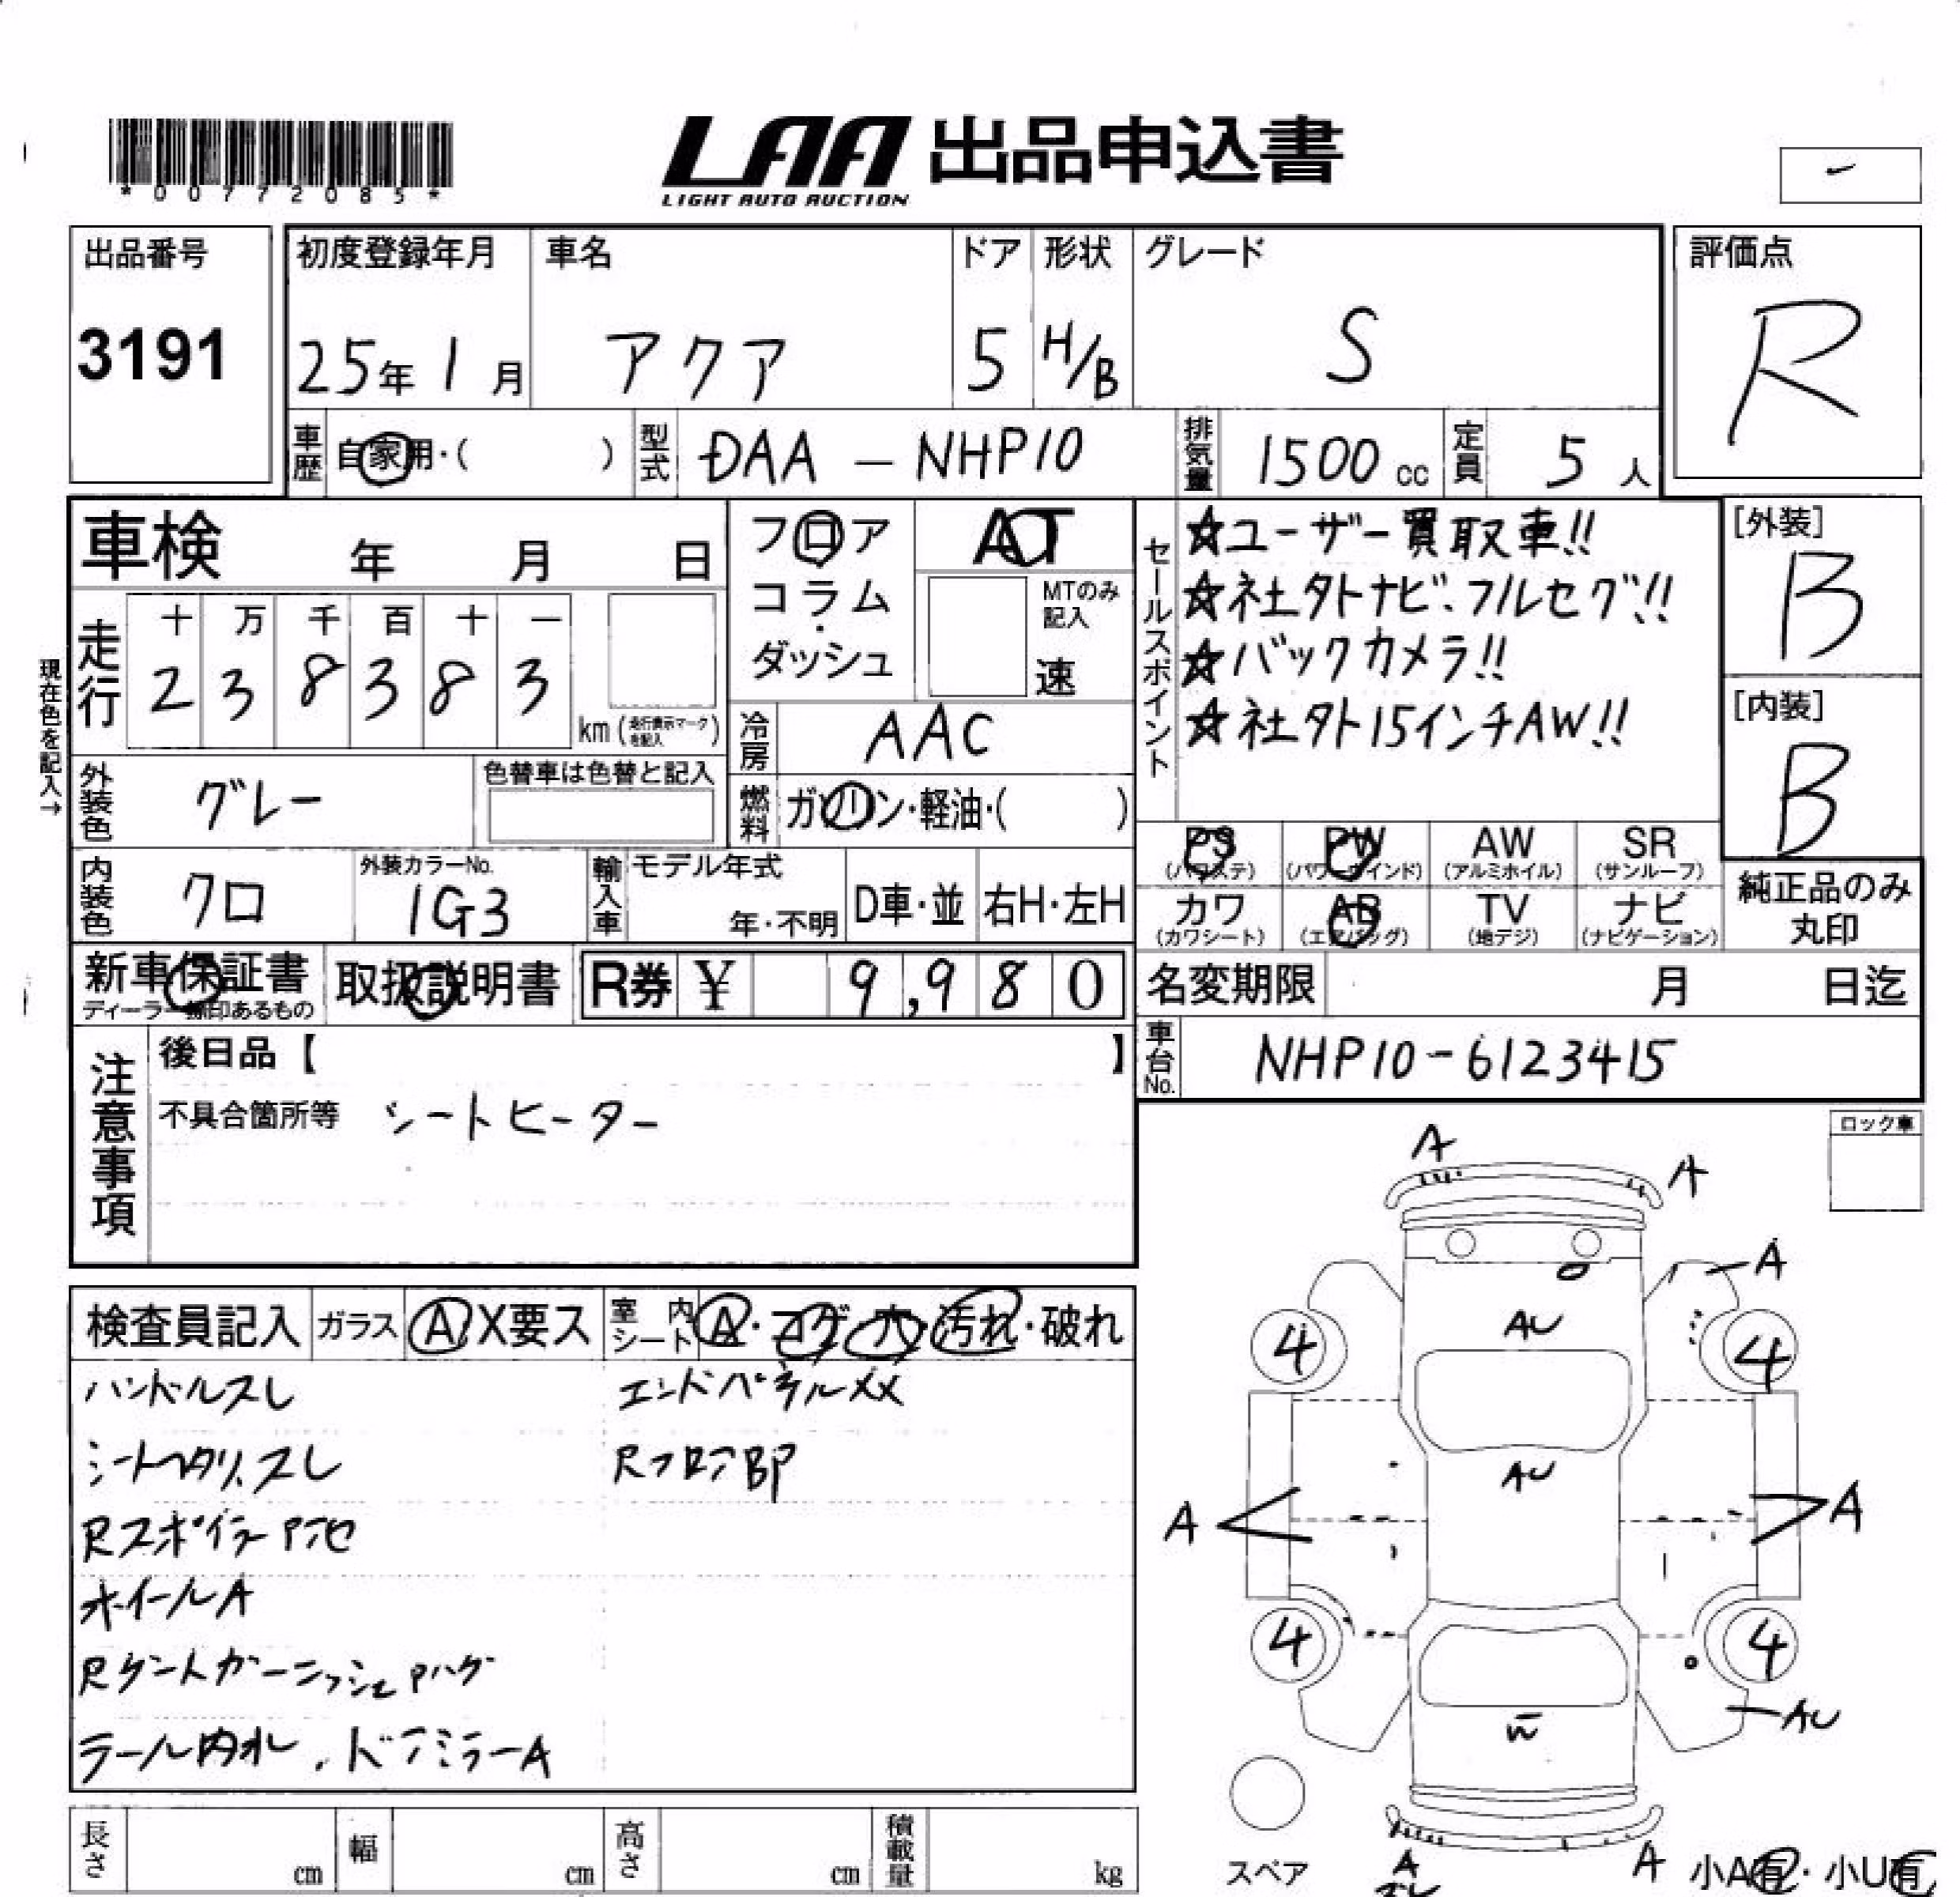 *00772085*
LAA 出品申込書
LIGHT AUTO AUCTION
出品番号
3191
初度登録年月
25年 1月
車名
アクア
ドア
5
形状
H/B
グレード
S
評価点
R
車歴 自家用・( )
型式 DAA - NHP10
排気量 1500 cc
定員 5 人
車検 年 月 日
現在色を記入→
走行
十 万 千 百 十 一
2 3 8 3 8 3
km (走行表示マークを記入)
フロア
コラム・
ダッシュ
AT
MTのみ記入
速
冷房 AAC
燃料 ガソリン・軽油・( )
セールスポイント
☆ユーザー買取車!!
☆社外ナビ.フルセグ!!
☆バックカメラ!!
☆社外15インチAW!!
[外装]
B
[内装]
B
外装色 グレー
色替車は色替と記入
内装色 クロ
外装カラーNo.
1G3
輸入車 モデル年式
年・不明
D車・並
右H・左H
PS (パワステ) PW (パワーウインド) AW (アルミホイル) SR (サンルーフ)
カワ (カワシート) AB (エアバッグ) TV (地デジ) ナビ (ナビゲーション)
純正品のみ
丸印
新車保証書
取扱説明書
R券 ¥ 9,980
名変期限 月 日迄
車台No. NHP10-6123415
注意事項
後日品【 】
不具合箇所等 シートヒーター
ロック車
検査員記入 ガラス A X要ス 室内シート A・コゲ・穴・汚れ・破れ
ハンドルスレ
エンドパネルXX
シートヘタリ.スレ
Rフロア部
Rスポイラー
ホイールA
ガーニッシュ
ドアミラーA
A
A
A
AU
4
4
AU
A
A
4
4
AU
W
スペア
A
A
小A有・小U有
長さ cm
幅 cm
高さ cm
積載量 kg